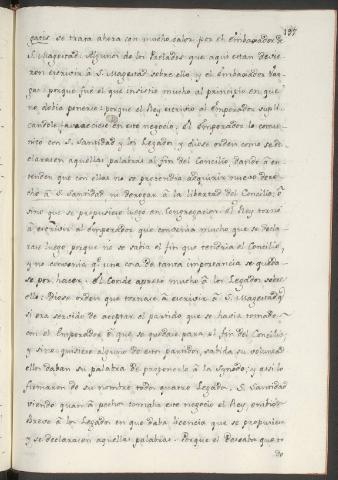 197
garis se trata ahora con mucho calor por el embaxador de
S. Magestad. Algunos de los Prelados que aqui estan devie-
ron escrivir à S. Magestad sobre ello, y el embaxador Var-
gas; porque fue el que insistio mucho al principio en que
no debia ponerse: porque el Rey escrivio al Emperador supli-
candole favoreciese en este negocio. El Emperador lo comu-
nicò con S. Santidad y los Legados y diose orden como se de-
clarasen aquellas palabras al fin del Concilio, dando à en-
tender que con ellas no se pretendia adquirir nuevo dere-
cho à S. Santidad ni derogar à la libertad del Concilio, ò
sino que se propusiese luego en Congregacion. el Rey tornò
à escrivir al emperador que convenia mucho que se decla-
rase luego, porque no se sabia el fin que tendria el Concilio,
y no convenia q. una cosa de tanta importancia se queda-
se por hacer. El Conde apretò mucho à los Legados sobre
ello: diose orden que tornase à escrivir à S. Magestad q.
si era servido de aceptar el partido que se havia tomado
con el Emperador de que se quedase para el fin del Concilio
y sino quisiese alguno de estos partidos, sabida su voluntad
ellos daban su palabra de proponerlo à la Synodo; y asi lo
firmaron de su nombre todos quatro Legados. S. Santidad
viendo quan à pechos tomaba este negocio el Rey, embiò
Breve à los Legados en que daba licencia que se propusiese
y se declarasen aquellas palabras. Porque el
do